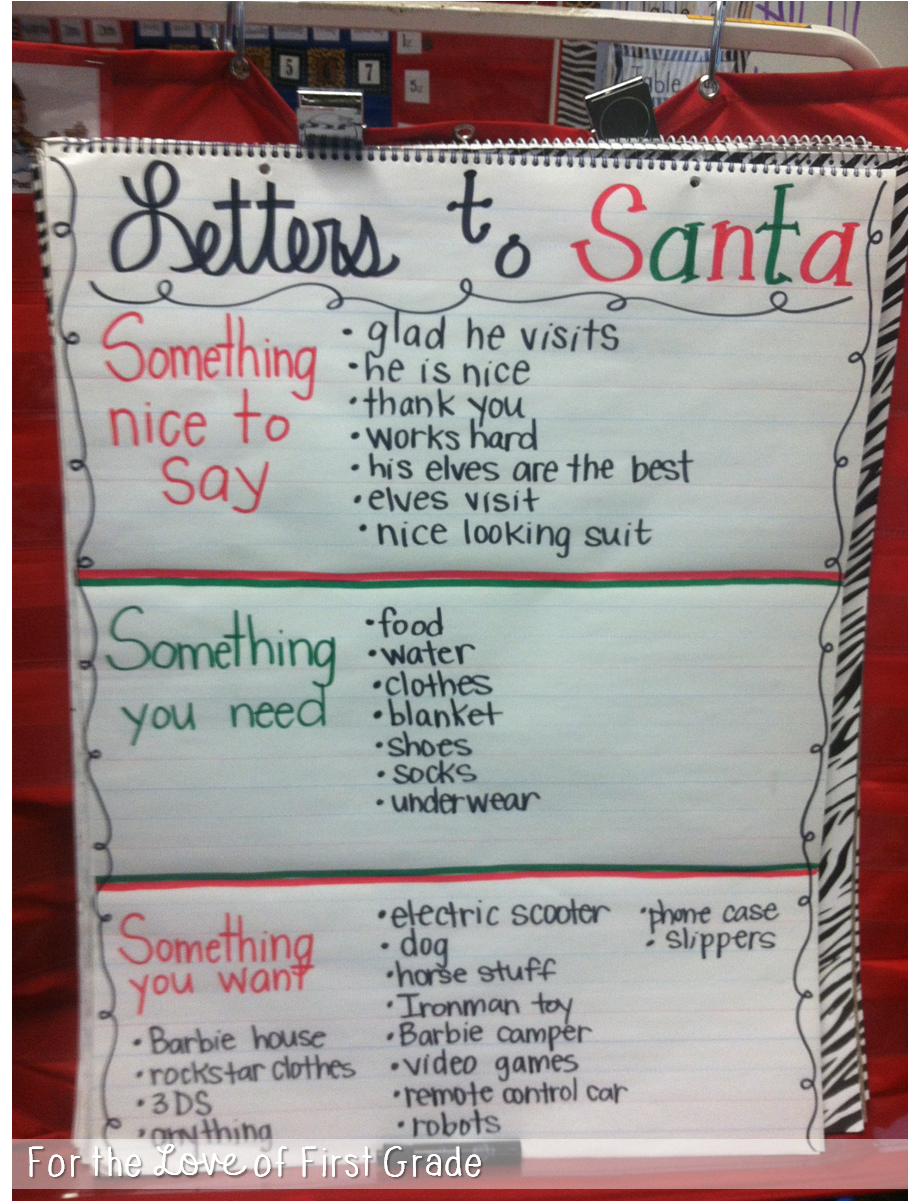 5
7
Table
Letters to Santa
Something
nice to
say
• glad he visits
• he is nice
• thank you
• works hard
• his elves are the best
• elves visit
• nice looking suit
Something
you need
• food
• water
• clothes
• blanket
• shoes
• socks
• underwear
Something
you want
• Barbie house
• rockstar clothes
• 3DS
• anything
• electric scooter
• dog
• horse stuff
• Ironman toy
• Barbie camper
• video games
• remote control car
• robots
• phone case
• slippers
For the Love of First Grade